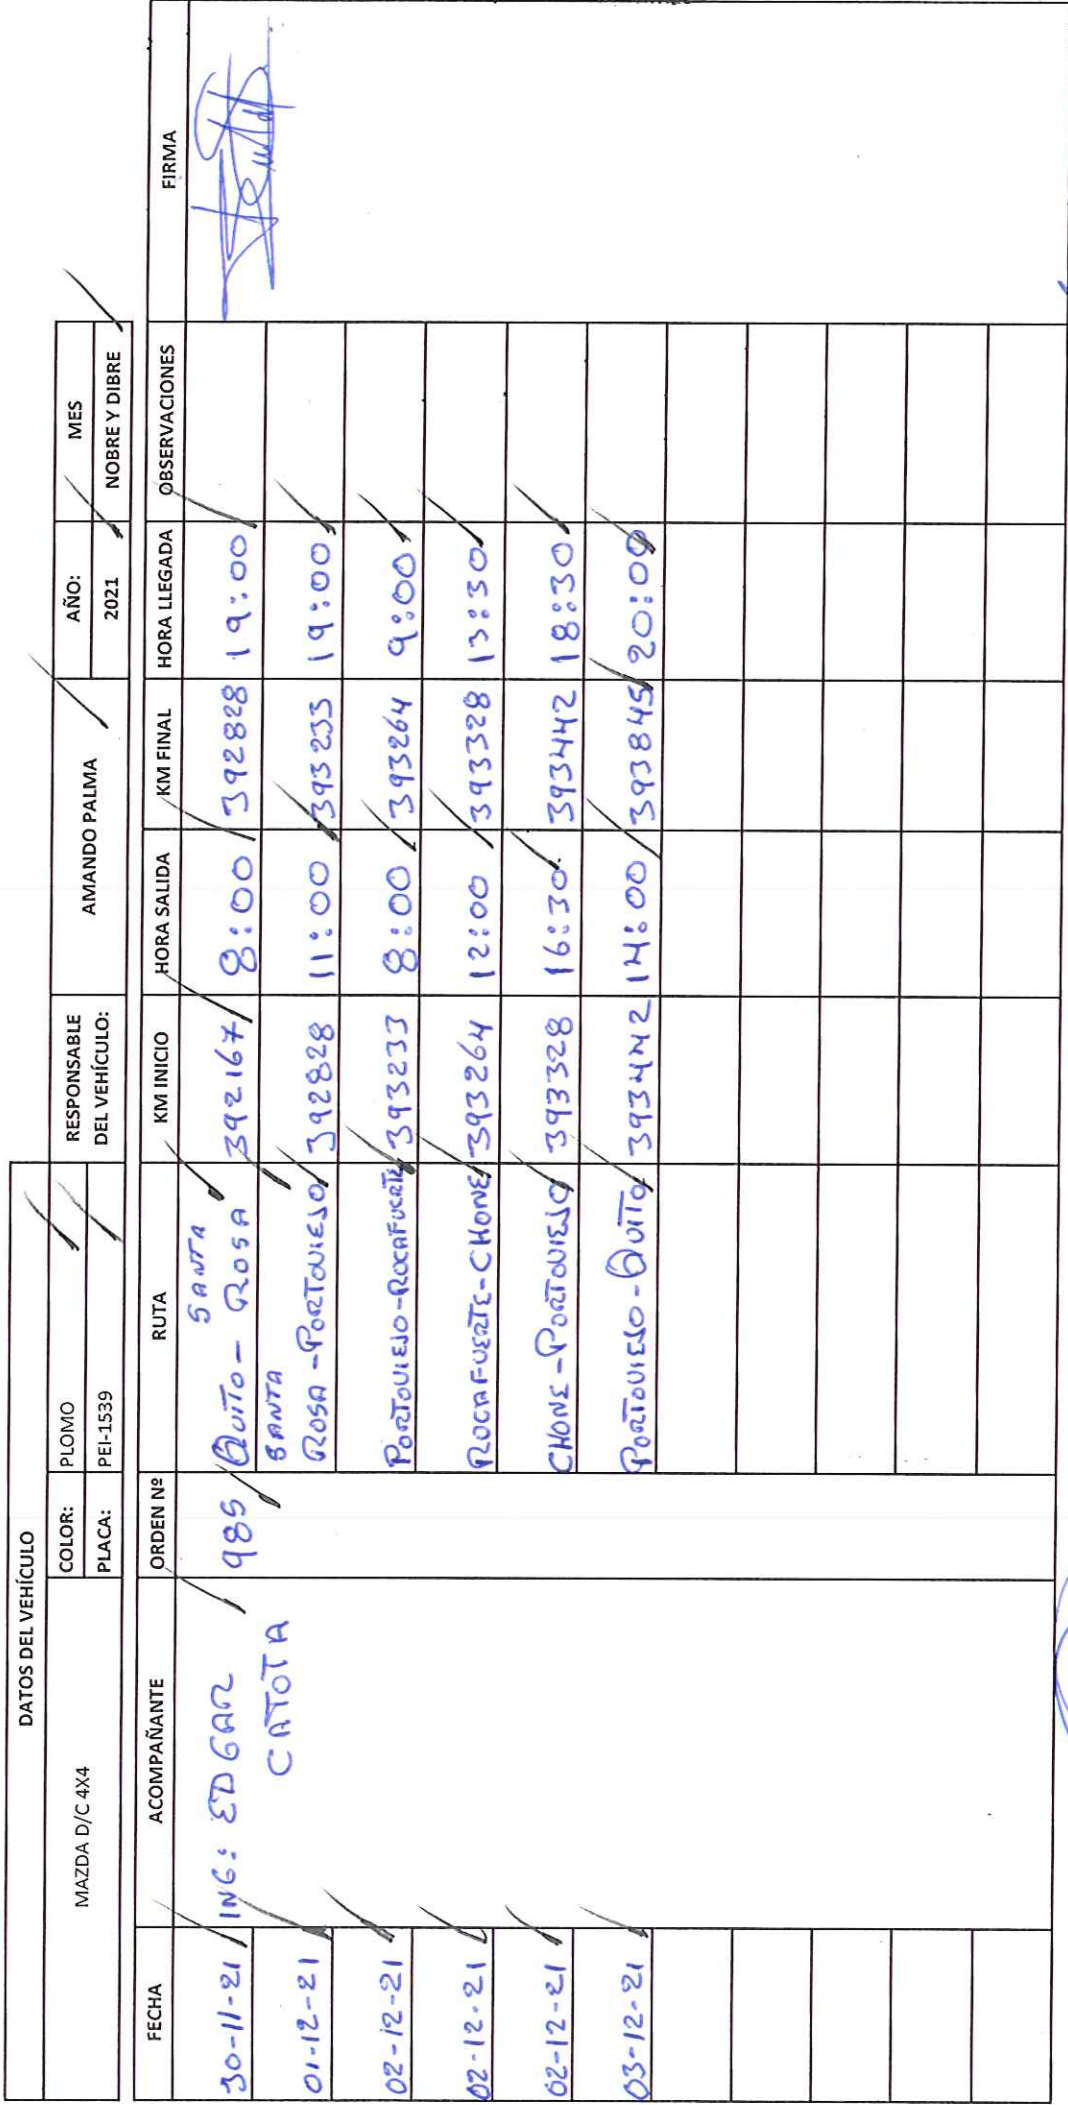 DATOS DEL VEHÍCULO
MAZDA D/C 4X4 COLOR: PLOMO RESPONSABLE DEL VEHÍCULO: AMANDO PALMA AÑO: MES
PLACA: PEI-1539 2021 NOBRE Y DIBRE
FECHA ACOMPAÑANTE ORDEN Nº RUTA KM INICIO HORA SALIDA KM FINAL HORA LLEGADA OBSERVACIONES FIRMA
30-11-21 ING: EDGAR CATOTA 985 QUITO - SANTA ROSA 392167 8:00 392828 19:00
01-12-21 SANTA ROSA - PORTOVIEJO 392828 11:00 393233 19:00
02-12-21 PORTOVIEJO - ROCAFUERTE 393233 8:00 393264 9:00
02-12-21 ROCAFUERTE - CHONE 393264 12:00 393328 13:30
02-12-21 CHONE - PORTOVIEJO 393328 16:30 393442 18:30
03-12-21 PORTOVIEJO - QUITO 393442 14:00 393845 20:00